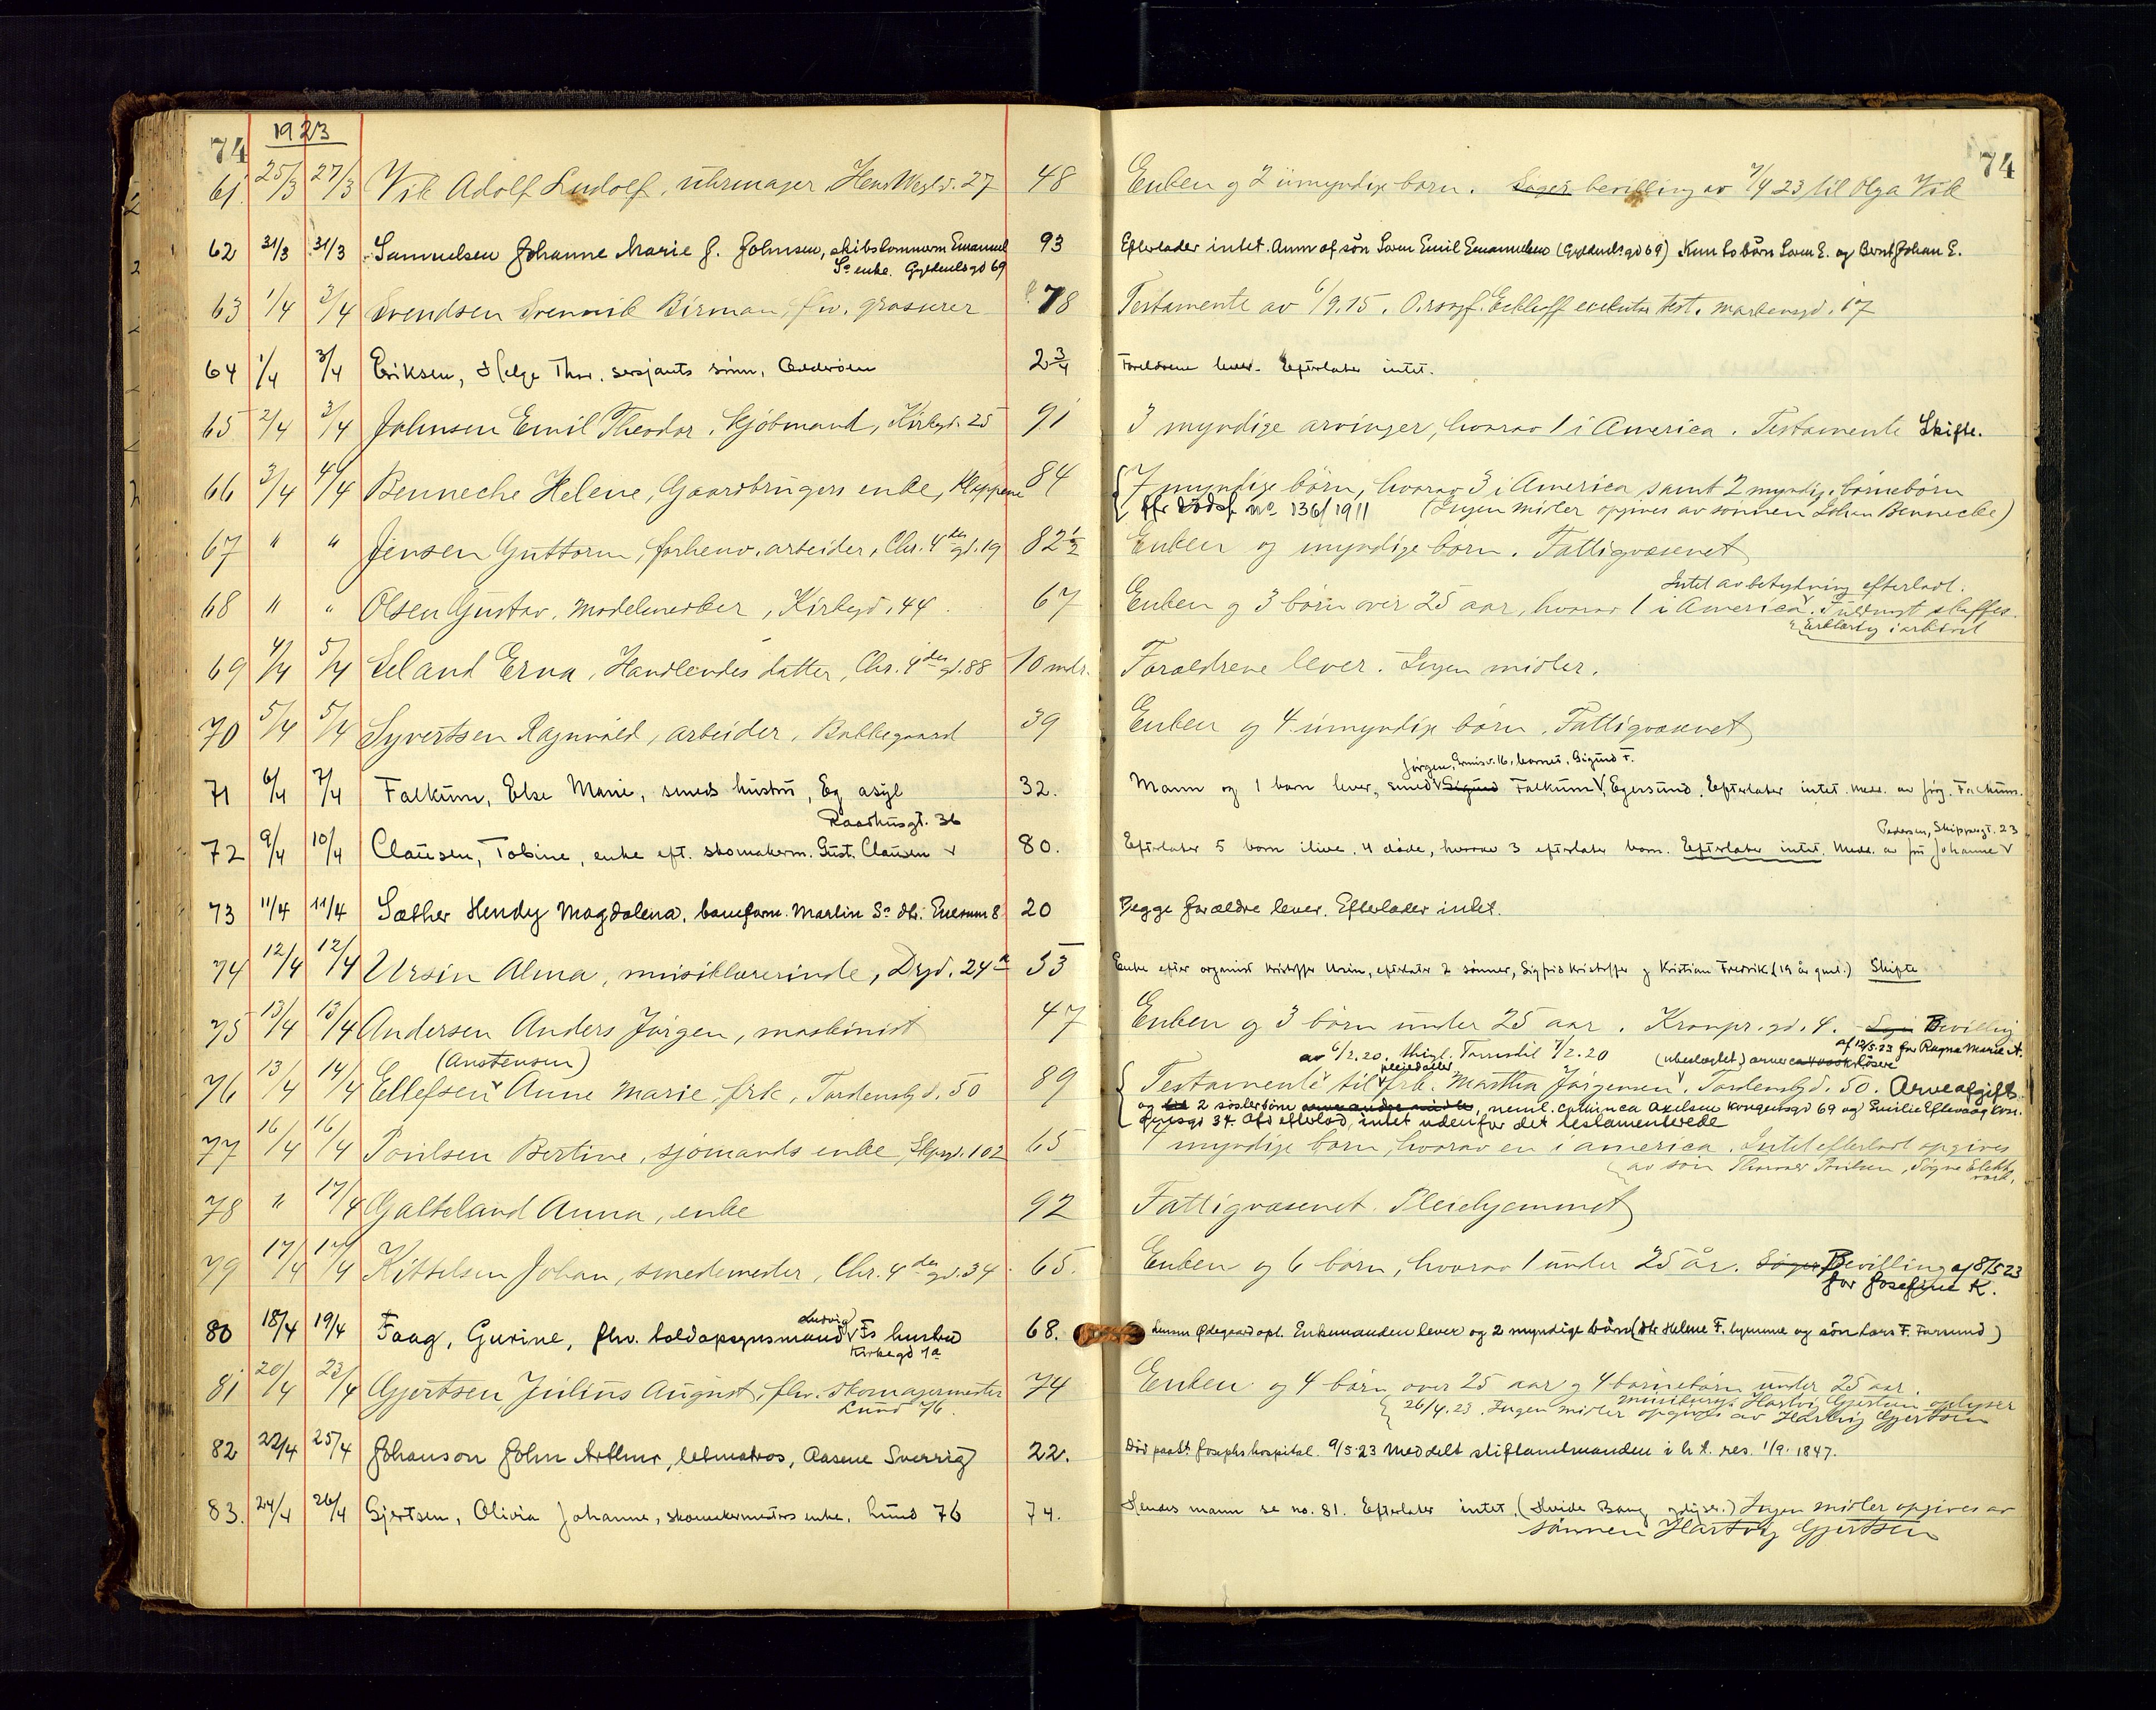 74 1923 74
61 25/3 27/3 Vik Adolf Ludolf, uhrmager Hens Wergl. 27 48 Enken og 2 umyndige børn. Søger bevilling av 7/4 23 til Olga Vik
62 31/3 31/3 Samuelsen Johanne Marie f. Johnsen, skibstømmerm Emanuel 93 Efterlader intet. Anm af søn Søren Emil Emanuelsen (Gyldenl.gd 69) Kun to børn Søren E. og Bernt Johan E.
Ss enke. Gyldenlvsgd 69
63 1/4 3/4 Svendsen Svennik Birman, fhv. grosserer 78 Testamente av 6/9.15. O.rsagf. Eckhoff executor test. Markensgd. 17
64 1/4 3/4 Eriksen, Helge Thor, sersjants sønn, Odderøen 2 3/4 Foreldrene lever. Efterlater intet.
65 2/4 3/4 Johnsen Emil Theodor, Kjøbmand, Kirkegd. 25 91 3 myndige arvinger, hvorav 1 i America. Testamente Skifte.
66 3/4 4/4 Benneche Helene, Gaardbrugers enke, Kloppene 84 7 myndige børn, hvorav 3 i America samt 2 myndige børnebørn
Cfr dødsf no 136/1911 (Ingen midler opgives av sønnen Johan Benneche)
67 " " Jensen Guttorm, forhenv. arbeider, Chr. 4des gd. 19 82 1/2 Enken og myndige børn. Fattigvæsenet
Intet av betydning efterladt.
68 " " Olsen Gustav, Modelsnedker, Kirkegd. 44 67 Enken og 3 børn over 25 aar, hvorav 1 i America. Fuldmgt skaffes.
Erklæring i arkivet
69 4/4 5/4 Seland Erna, Handlendes datter, Chr. 4des gd. 88 10 mdr. Forældrene lever. Ingen midler.
70 5/4 5/4 Syvertsen Ragnvald, arbeider, Bakkegaard 39 Enken og 4 umyndige børn. Fattigvæsenet
Jørgen, barnet, Sigurd F.
71 6/4 7/4 Falkum, Else Marie, smeds hustru, Eg asyl 32. Mann og 1 barn lever, smed Sigurd Falkum, Egersund. Efterlater intet. Medd. av Jörg. Falkum.
Raadhusgt. 36 Pedersen, Skippergt. 23
72 9/4 10/4 Clausen, Tobine, enke eft. skomakerm. Gust. Clausen 80. Efterlater 5 barn ilive, 4 døde, hvorav 3 efterlater barn. Efterlater intet. Medd. av fru Johanne
73 11/4 11/4 Sæther Hendy Magdalena, baneform. Martin Ss dtr. Enerum 8 20 Begge forældre lever. Efterlader intet.
74 12/4 12/4 Ursin Alma, musiklærerinde, Drgd. 24a 53 Enke efter organist Kristoffer Ursin, efterlater 2 sønner, Sigfrid Kristoffer og Kristian Fredrik (19 år gml.) Skifte
75 13/4 13/4 Andersen Anders Jørgen, maskinist 47 Enken og 3 børn under 25 aar. Kronpr.gd. 4. Bevilling
af 12/5.23 for Ragna Marie A.
(Austensen) av 6/2.20. thigl. 7/2.20 (ubeslægtet)
76 13/4 14/4 Ellefsen Anne Marie, frk, Tordenskj.gd. 50 89 Testamente til pleiedatter frk. Martha Jørgensen. Tordenskj.gd. 50. Arveafgift.
og 2 søsterbørn neml. Axelsen Kongensgd 69 og Emilie Eftevaag Kon-
gensgd 37. Afd efterlod intet udenfor det testamenterede
77 16/4 16/4 Poulsen Bertine, sjømands enke, Skpgd. 102 65 7 myndige børn, hvorav en i America. Intet efterladt opgives
av søn Thorvald Poulsen, Søgne
78 " 17/4 Galteland Anna, enke 92 Fattigvæsenet. Pleiehjemmet
79 17/4 17/4 Kittelsen Johan, smedemester, Chr. 4des gd. 34. 65. Enken og 6 børn, hvorav 1 under 25 år. Søger Bevilling af 8/5 23
for Josefine K.
Ludvig
80 18/4 19/4 Faag, Gurine, fhv. toldopsynsmand Fs hustru 68. Ødegaard opl. Enkemanden lever og 2 myndige børn (dtr Helene F. hjemme og søn Lars F. Farsund)
Kirkegd 1a
81 20/4 23/4 Gjertsen, Julius August, fhv. skomagermester 74 Enken og 4 børn over 25 aar og 4 børnebørn under 25 aar.
Lund 76. Hartvig Gjertsen oplyser
26/4.23. Ingen midler opgives av Hartvig Gjertsen
82 22/4 25/4 Johanson John Arthur, letmatros, Aasene Sverrig 22. Død paa St. Josephs hospital. 9/5.23 Meddelt stiftamtmanden i h.t. res. 1/9. 1847.
83. 24/4 26/4 Gjertsen, Olivia Johanne, skomakermesters enke, Lund 76 74. Hendes mann se no. 81. Efterlater intet. (Hvide Bang oplyser.) Ingen midler opgives av
sønnen Hartvig Gjertsen